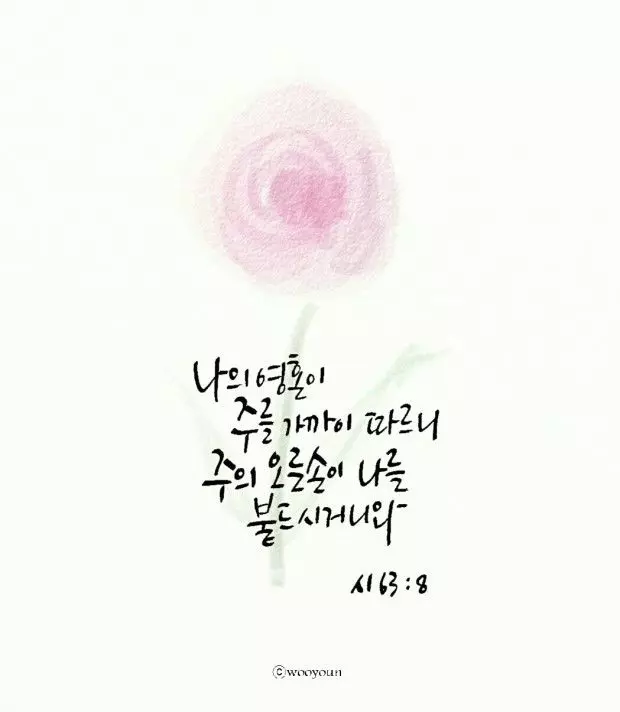 나의 영혼이
주를 가까이 따르니
주의 오른손이 나를
붙드시거니와
시 63:8
ⓒwooyoun